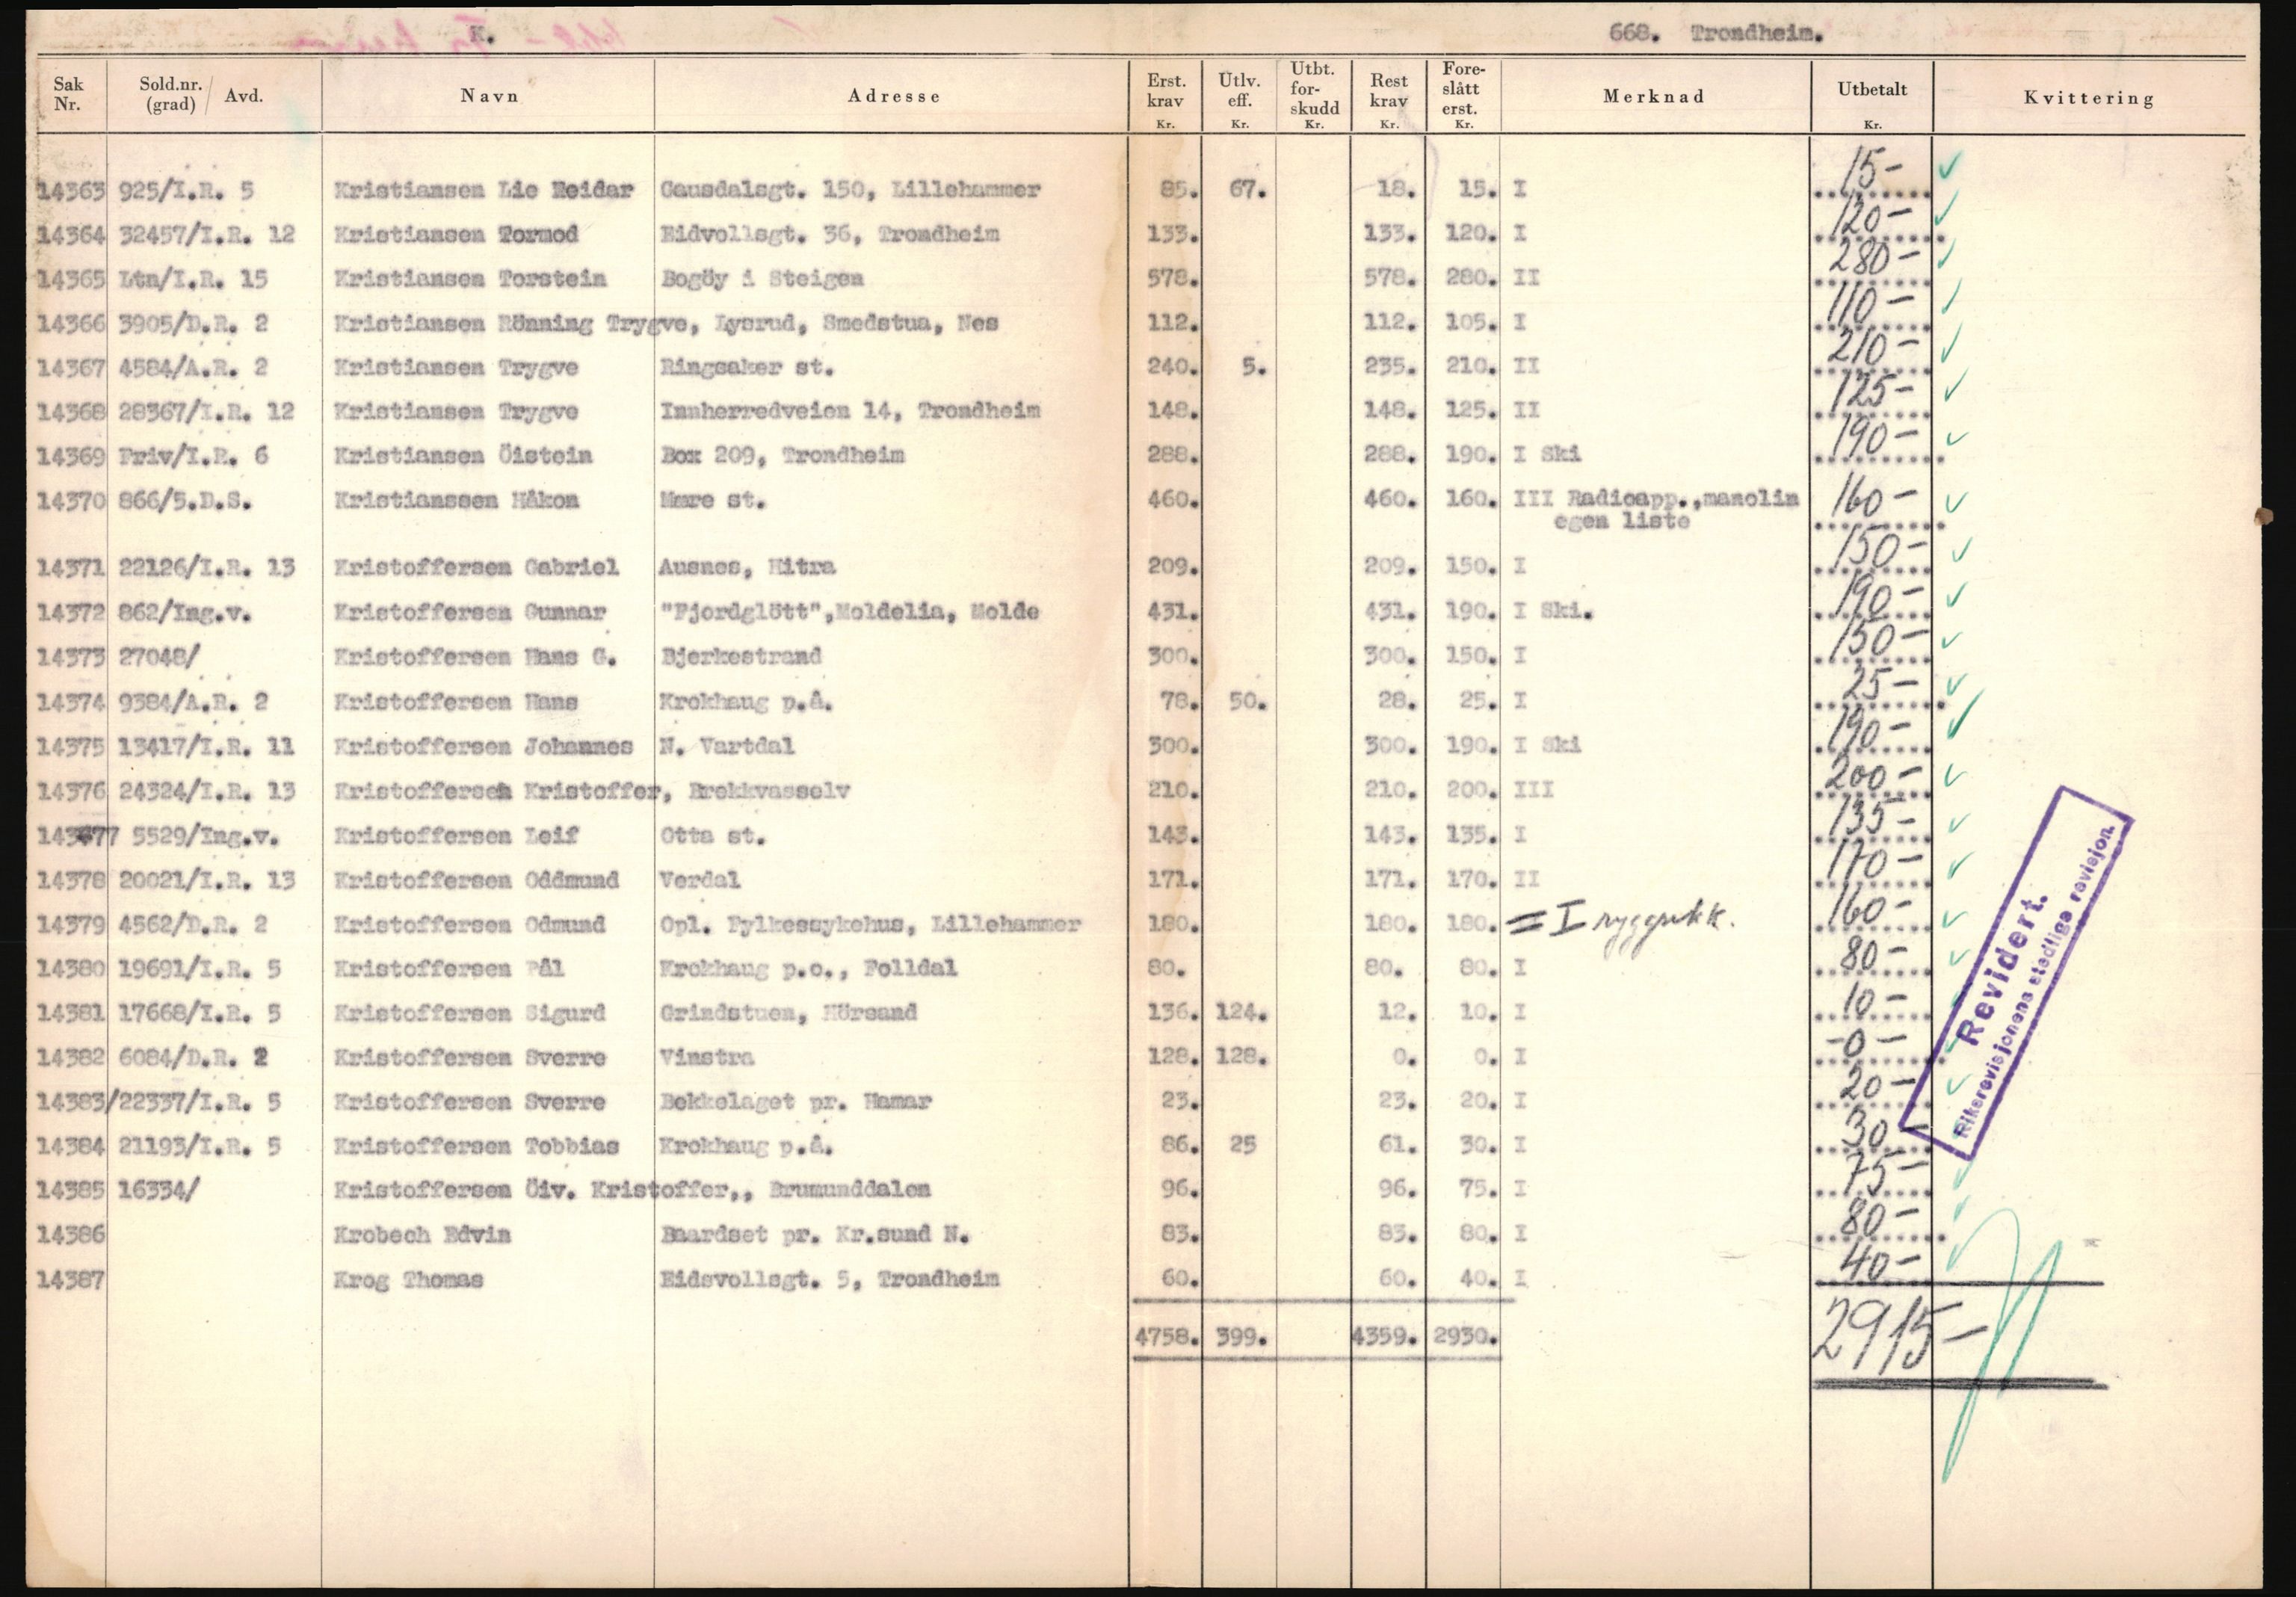 K. 668. Trondheim.
Sak Nr. Sold.nr. (grad) / Avd. Navn Adresse Erst. krav Kr. Utlv. eff. Kr. Utbt. for- skudd Kr. Rest krav Kr. Fore- slått erst. Kr. Merknad Utbetalt Kr. Kvittering
14363 925/I.R. 5 Kristiansen Lie Reidar Gausdalsgt. 150, Lillehammer 85. 67. 18. 15. I 15-
14364 32457/I.R. 12 Kristiansen Tormod Eidvollsgt. 36, Trondheim 133. 133. 120. I 120-
14365 Ltn/I.R. 15 Kristiansen Torstein Bogöy i Steigen 578. 578. 280. II 280-
14366 3905/D.R. 2 Kristiansen Rönning Trygve, Lysrud, Smedstua, Nes 112. 112. 105. I 110-
14367 4584/A.R. 2 Kristiansen Trygve Ringsaker st. 240. 5. 235. 210. II 210-
14368 28367/I.R. 12 Kristiansen Trygve Innherredveien 14, Trondheim 148. 148. 125. II 125-
14369 Friv/I.R. 6 Kristiansen Öistein Box 209, Trondheim 288. 288. 190. I Ski 190-
14370 866/5.D.S. Kristianssen Håkon Mære st. 460. 460. 160. III Radioapp.,manolin 160-
egen liste
14371 22126/I.R. 13 Kristoffersen Gabriel Ausnes, Hitra 209. 209. 150. I 150-
14372 862/Ing.v. Kristoffersen Gunnar "Fjordglött",Moldelia, Molde 431. 431. 190. I Ski. 190-
14373 27048/ Kristoffersen Hans G. Bjerkestrand 300. 300. 150. I 150-
14374 9384/A.R. 2 Kristoffersen Hans Krokhaug p.å. 78. 50. 28. 25. I 25-
14375 13417/I.R. 11 Kristoffersen Johannes N. Vartdal 300. 300. 190. I Ski 190-
14376 24324/I.R. 13 Kristoffersen Kristoffer, Brekkvasselv 210. 210. 200. III 200-
14377 5529/Ing.v. Kristoffersen Leif Otta st. 143. 143. 135. I 135-
14378 20021/I.R. 13 Kristoffersen Oddmund Verdal 171. 171. 170. II 170-
14379 4562/D.R. 2 Kristoffersen Odmund Opl. Fylkessykehus, Lillehammer 180. 180. 180. I 160-
14380 19691/I.R. 5 Kristoffersen Pål Krokhaug p.o., Folldal 80. 80. 80. I 80-
14381 17668/I.R. 5 Kristoffersen Sigurd Grindstuen, Hörsand 136. 124. 12. 10. I 10-
14382 6084/D.R. 2 Kristoffersen Sverre Vinstra 128. 128. 0. 0. I -0-
14383/22337/I.R. 5 Kristoffersen Sverre Bekkelaget pr. Hamar 23. 23. 20. I 20-
14384 21193/I.R. 5 Kristoffersen Tobbias Krokhaug p.å. 86. 25 61. 30. I 30-
14385 16334/ Kristoffersen Öiv. Kristoffer,, Brumunddalen 96. 96. 75. I 75-
14386 Krobech Edvin Baardset pr. Kr.sund N. 83. 83. 80. I 80-
14387 Krog Thomas Eidsvollsgt. 5, Trondheim 60. 60. 40. I 40-
4758. 399. 4359. 2930. 2915-
Revidert.
Riksrevisjonens stedlige revisjon.